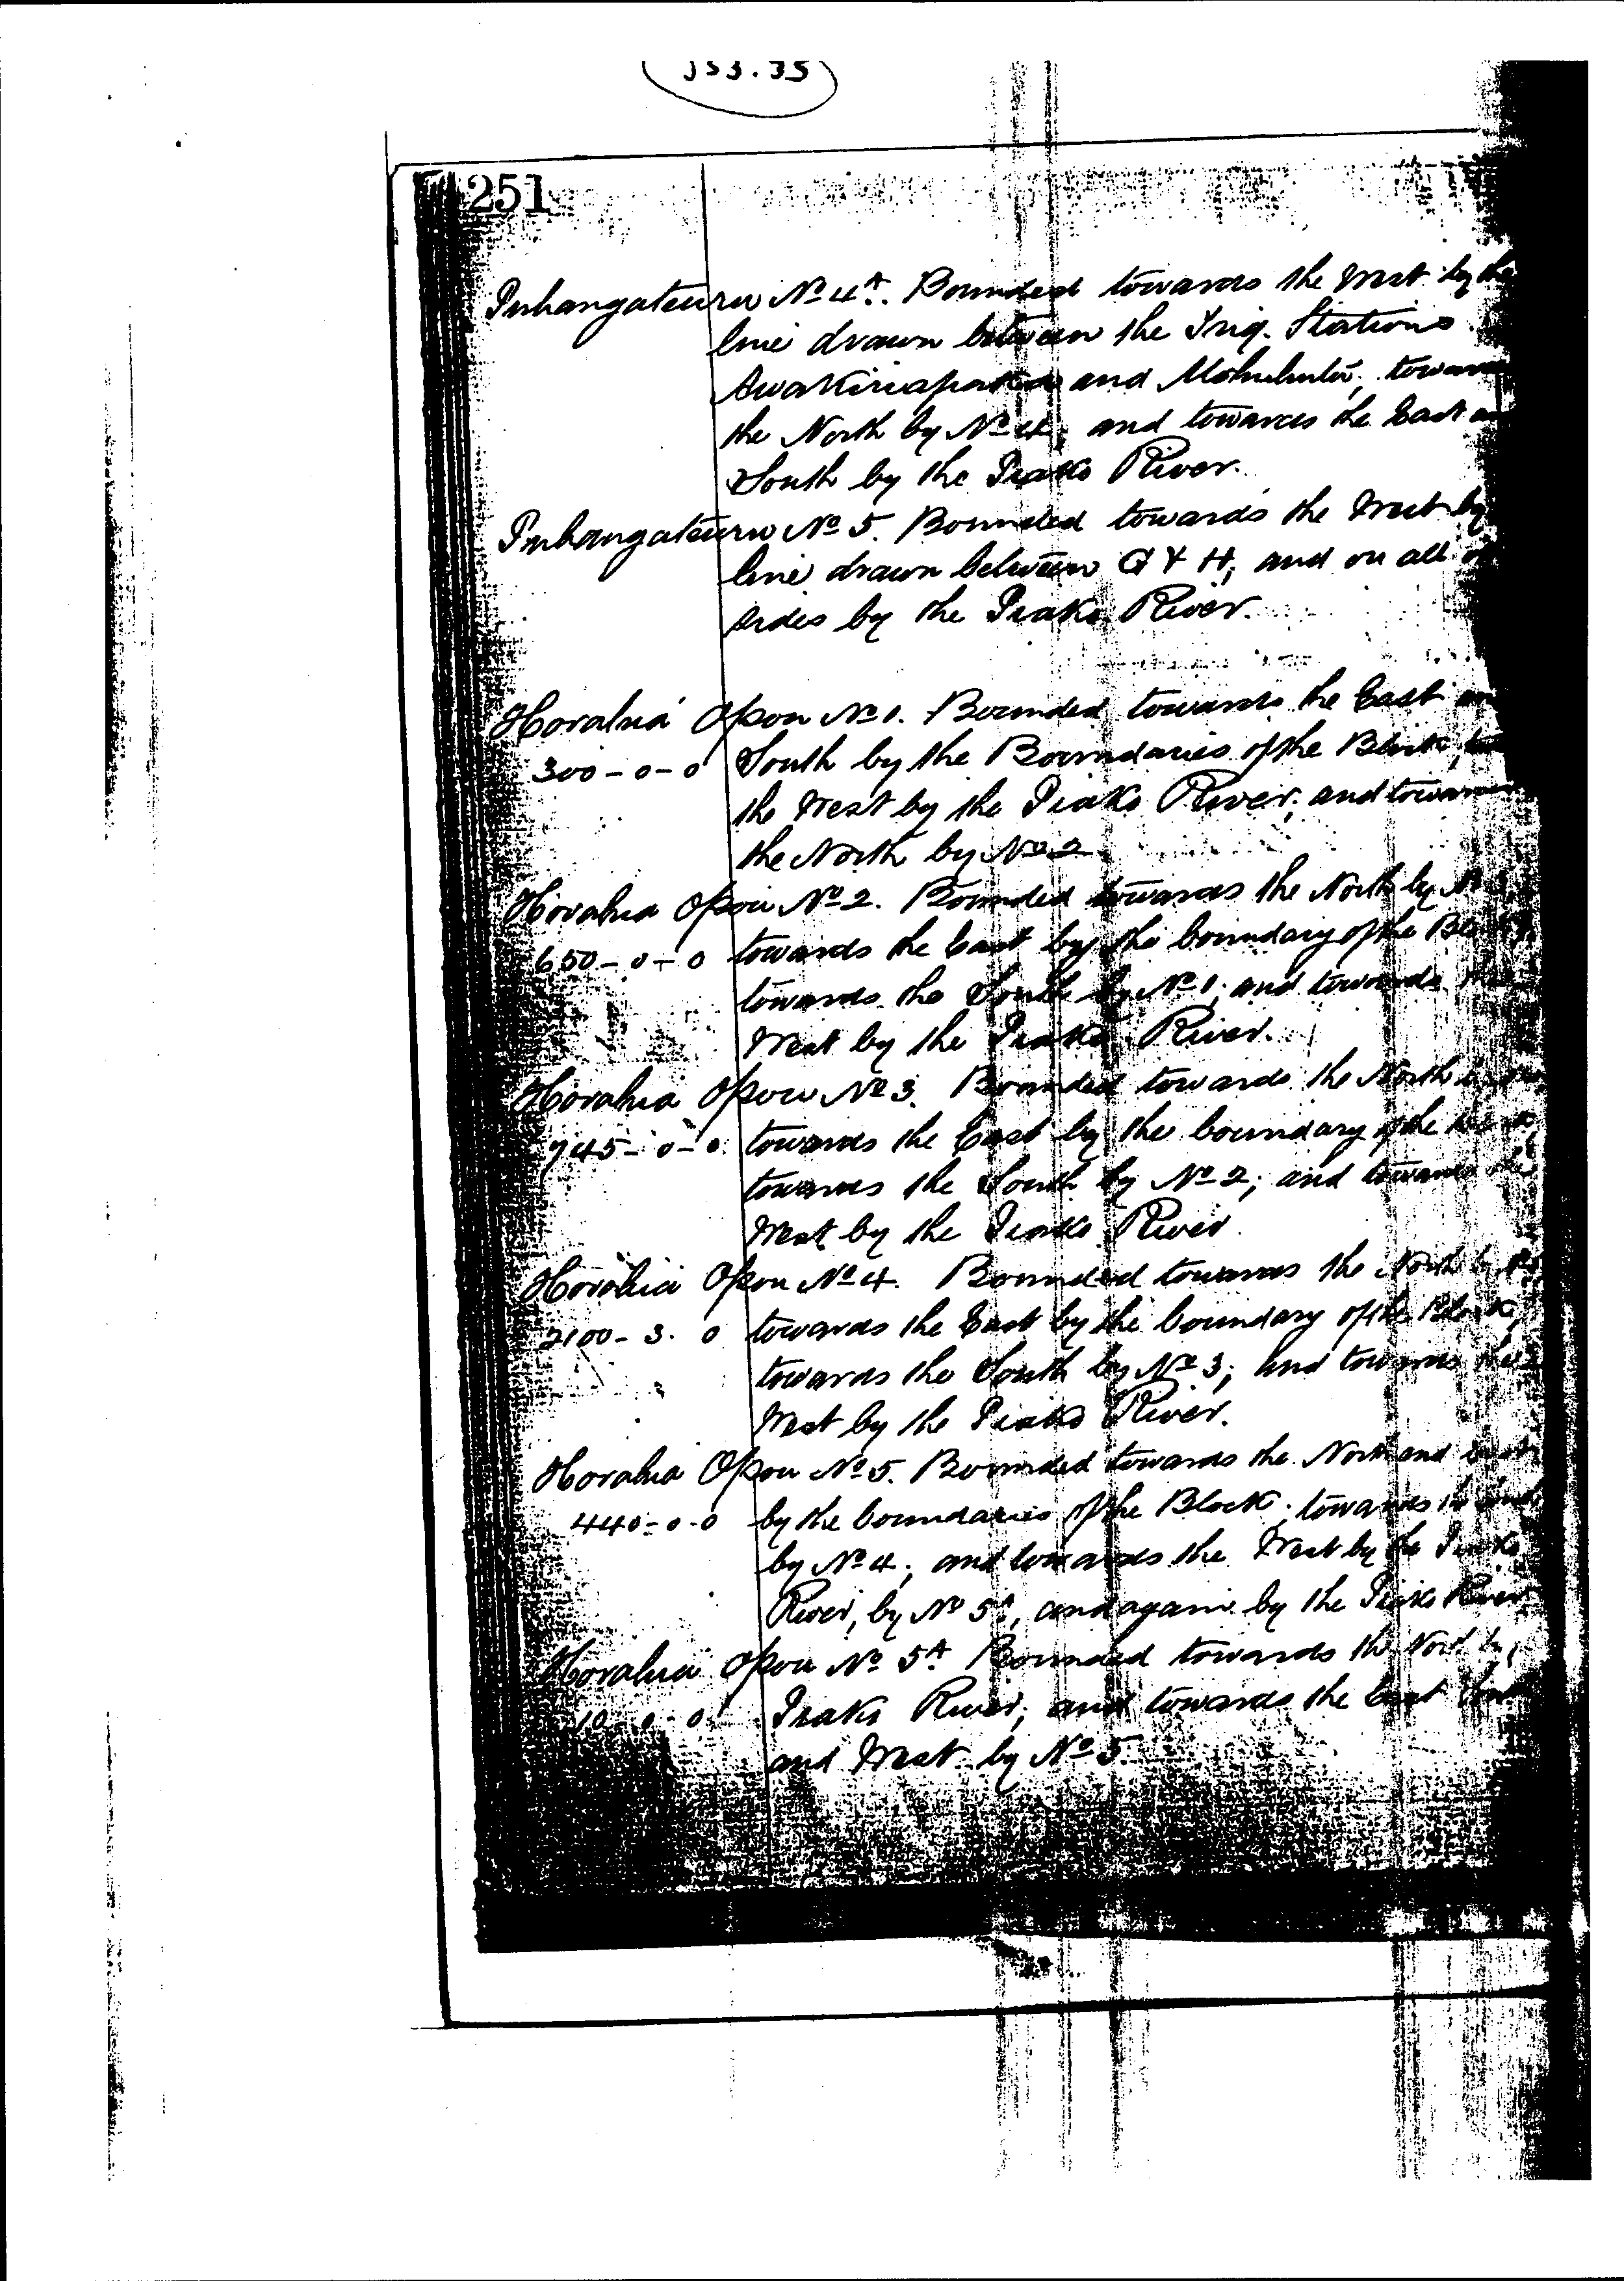 353.35
251
Puhangateuru No 4A. Bounded towards the West by the
line drawn between the Trig. Stations
and towards
the North by No 4; and towards the East
South by the Piako River.
Puhangateuru No 5. Bounded towards the West by
line drawn between G & H; and on all
sides by the Piako River.
Horahia Opou No 1. Bounded towards the East
300-0-0 South by the Boundaries of the Block,
the West by the Piako River; and towards
the North by No 2
Horahia Opou No 2. Bounded towards the North by
650-0-0 towards the East by the boundary of the Block
towards the South by No 1; and towards the
West by the Piako River.
Horahia Opou No 3. Bounded towards the North
745-0-0 towards the East by the boundary of the
towards the South by No 2; and towards the
West by the Piako River
Horahia Opou No 4. Bounded towards the North by
2100-3.0 towards the East by the boundary of the Block,
towards the South by No 3; and towards the
West by the Piako River.
Horahia Opou No 5. Bounded towards the North and East
440-0-0 by the boundaries of the Block; towards the
by No 4; and towards the West by the Piako
River, by No 5A, and again by the Piako River
Horahia Opou No 5A Bounded towards the North by
10-0-0 Piako River; and towards the East
and West by No 5.